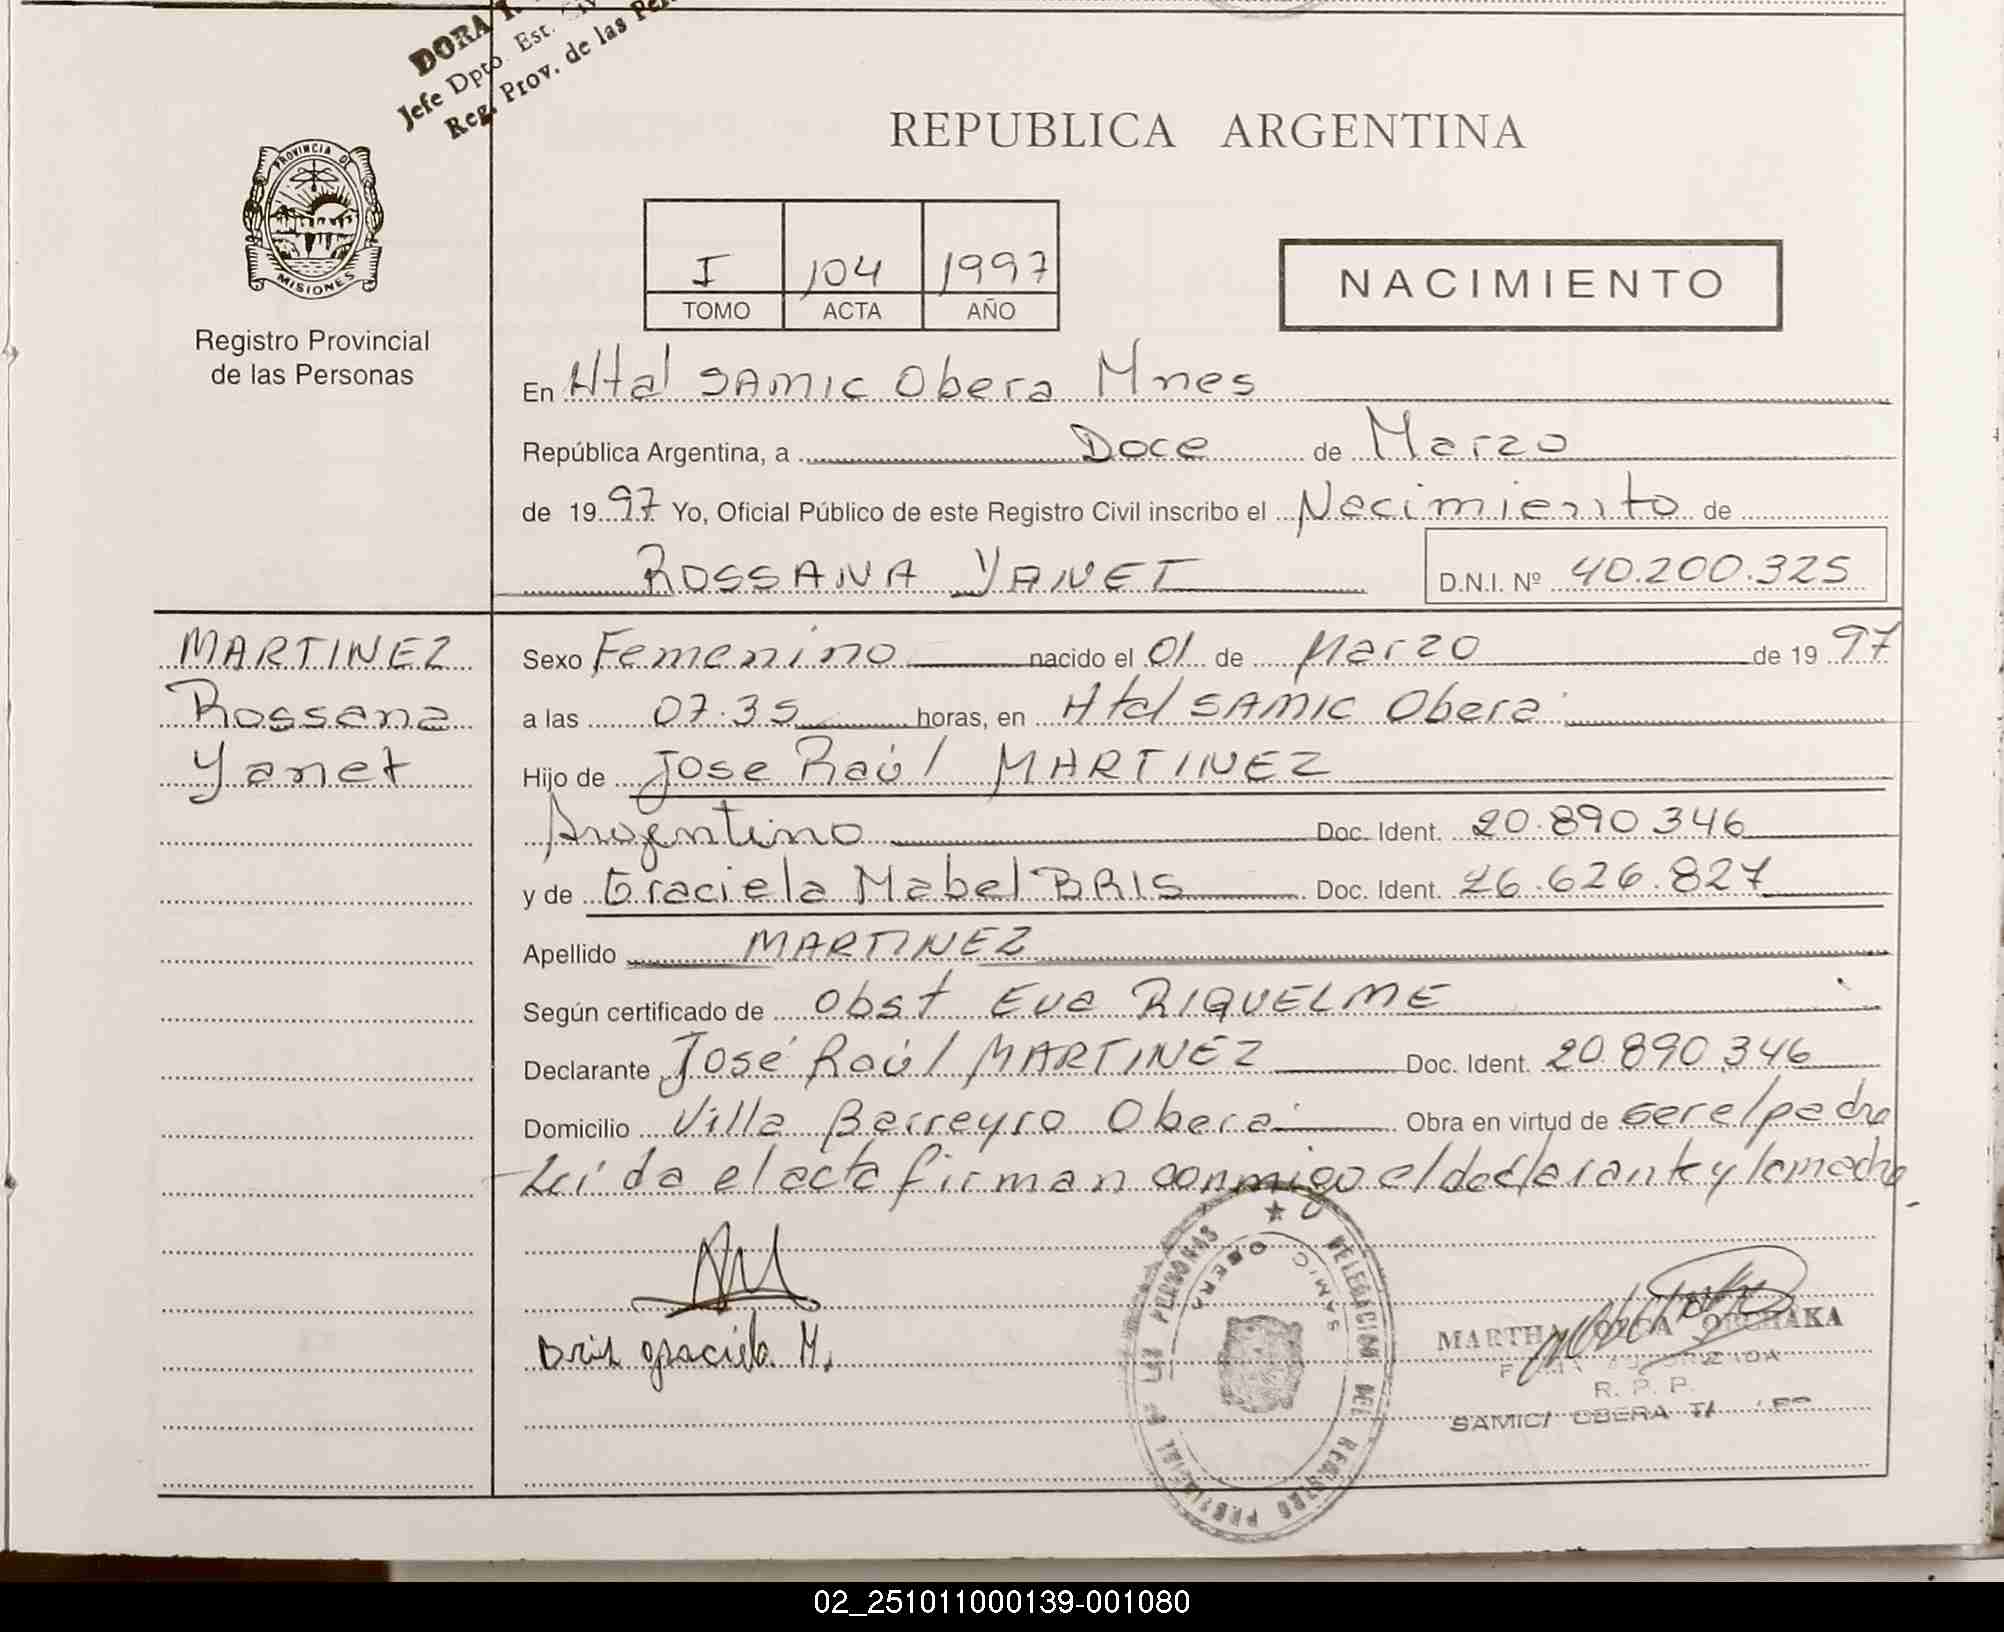 DORA
Jefe Dpto. Est.
Reg. Prov. de las
REPUBLICA ARGENTINA
PROVINCIA DE
MISIONES
Registro Provincial
de las Personas
I 104 1997
TOMO ACTA AÑO
NACIMIENTO
En Htal SAMIC Obera Mnes
República Argentina, a Doce de Marzo
de 1997 Yo, Oficial Público de este Registro Civil inscribo el Nacimiento de
ROSSANA YANET D.N.I. Nº 40.200.325
MARTINEZ
Rossana
Yanet
Sexo Femenino nacido el 01 de Marzo de 19 97
a las 07.35 horas, en Htal SAMIC Oberá
Hijo de Jose Raúl MARTINEZ
Argentino Doc. Ident. 20.890.346
y de Graciela Mabel BRIS Doc. Ident. 26.626.827
Apellido MARTINEZ
Según certificado de Obst Eva RIQUELME
Declarante José Raúl MARTINEZ Doc. Ident. 20.890.346
Domicilio Villa Barreyro Oberá Obra en virtud de ser el padre
Leída el acta firman conmigo el declarante y la madre
Bris graciela M.
DELEGACION DEL REGISTRO PROVINCIAL DE LAS PERSONAS
SAMIC OBERA
MARTHA
R. P. P.
SAMIC/ OBERA
02_251011000139-001080